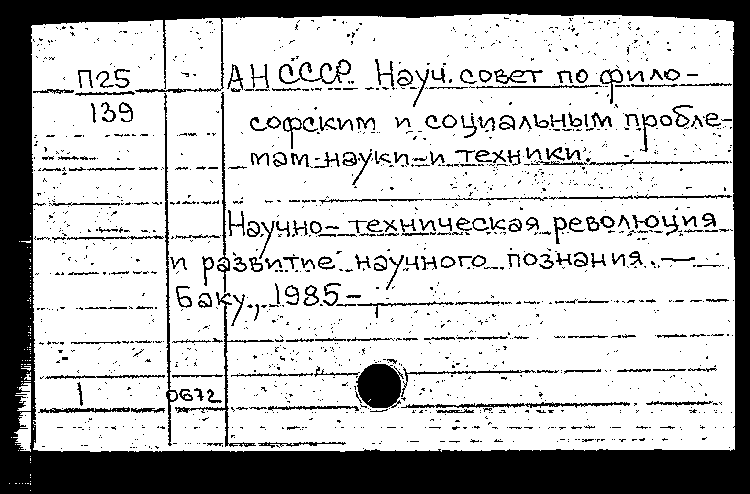 П25
139
АН СССР. Науч. совет по фило-
софским и социальным пробле-
мам науки и техники.
Научно-техническая революция
и развитие научного познания. —
Баку, 1985 –
1
0672